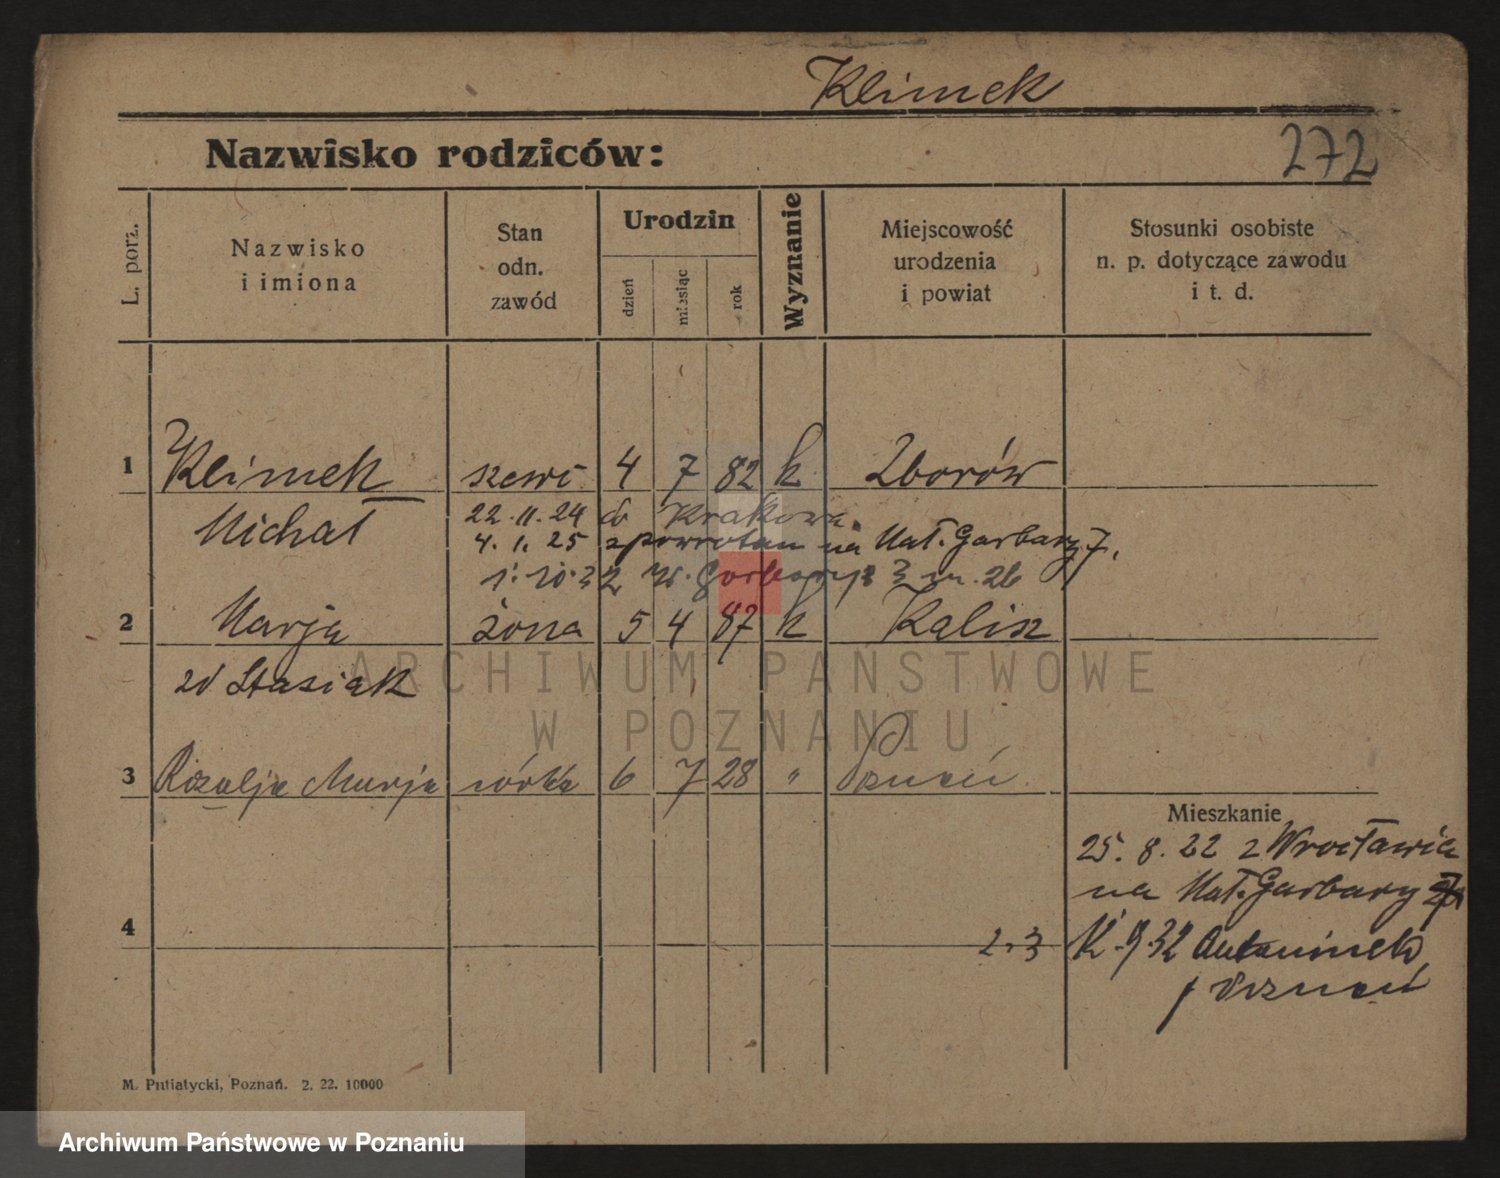 Klimek
Nazwisko rodziców:
272
L. porz.
Nazwisko
i imiona
Stan
odn.
zawód
Urodzin
dzień
miesiąc
rok
Wyznanie
Miejscowość
urodzenia
i powiat
Stosunki osobiste
n. p. dotyczące zawodu
i t. d.
1 Klimek szewc 4 7 82 k Zborów
Michał 22.11.24 do Krakowa
4. 1. 25 zpowrotem na Mał. Garbary 7.
1. 10. 32 Garbary 3 m. 26
2 Marja żona 5 4 87 k Kalisz
zd Stasiak
ARCHIWUM PAŃSTWOWE
W POZNANIU
3 Rozalja Marja córka 6 7 28 " Poznań
Mieszkanie
25. 8. 22 z Wrocławia
na Mał. Garbary
4
2.3
9.32 Antoninek
p Poznań
M. Putiatycki, Poznań. 2. 22. 10000
Archiwum Państwowe w Poznaniu